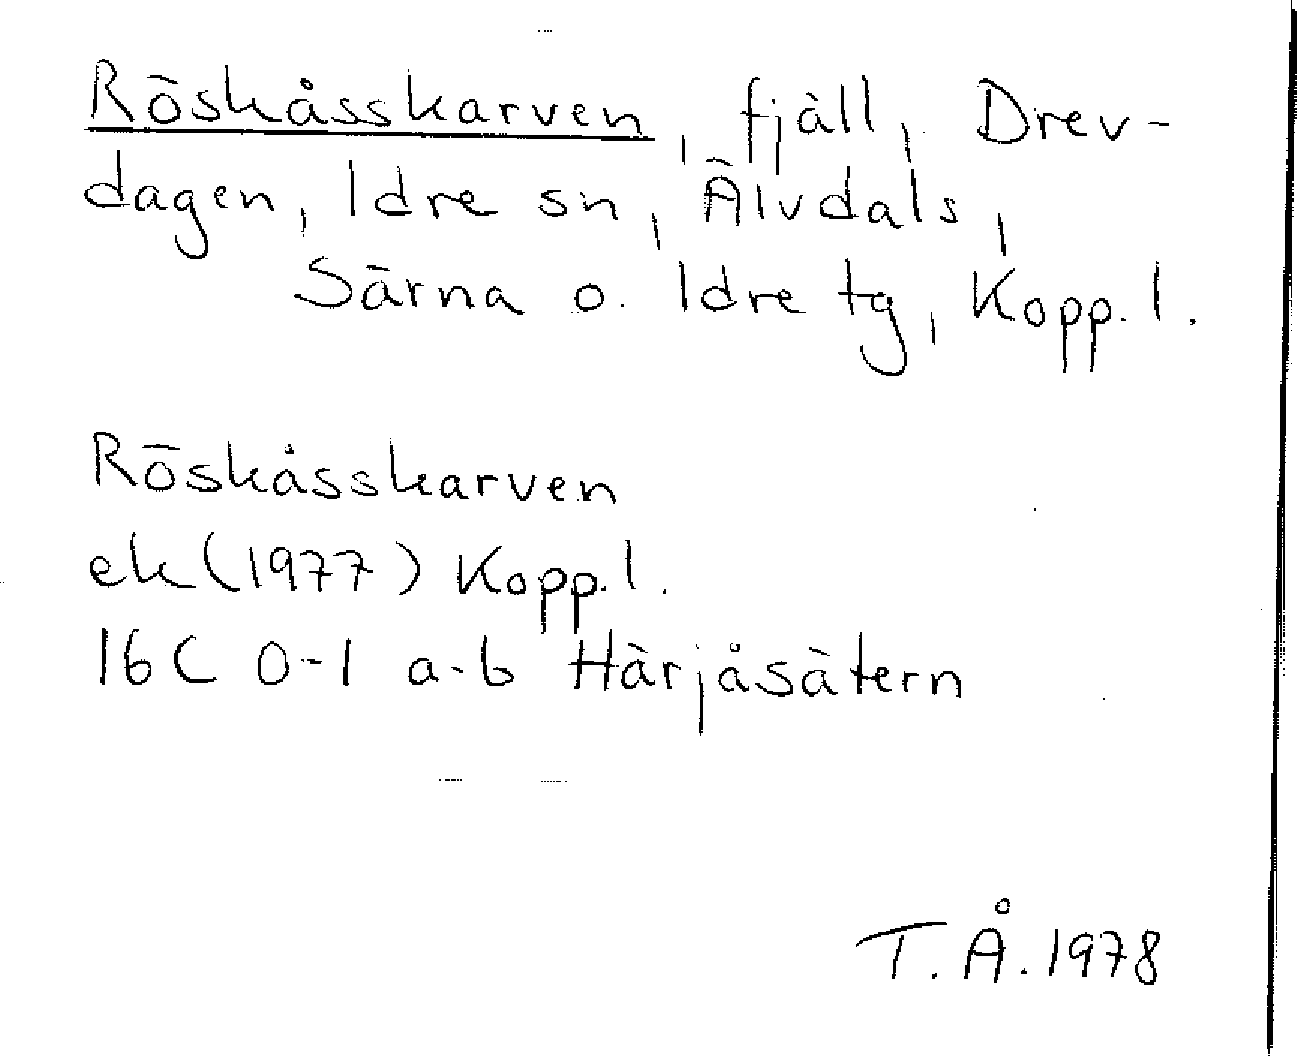 Röskåsskarven, fjäll, Drev-
dagen, Idre sn, Älvdals,
Särna o. Idre tg, Kopp. l.
Röskåsskarven
ek (1977) Kopp. l.
16C 0-1 a-b Härjåsätern
T. Å. 1978